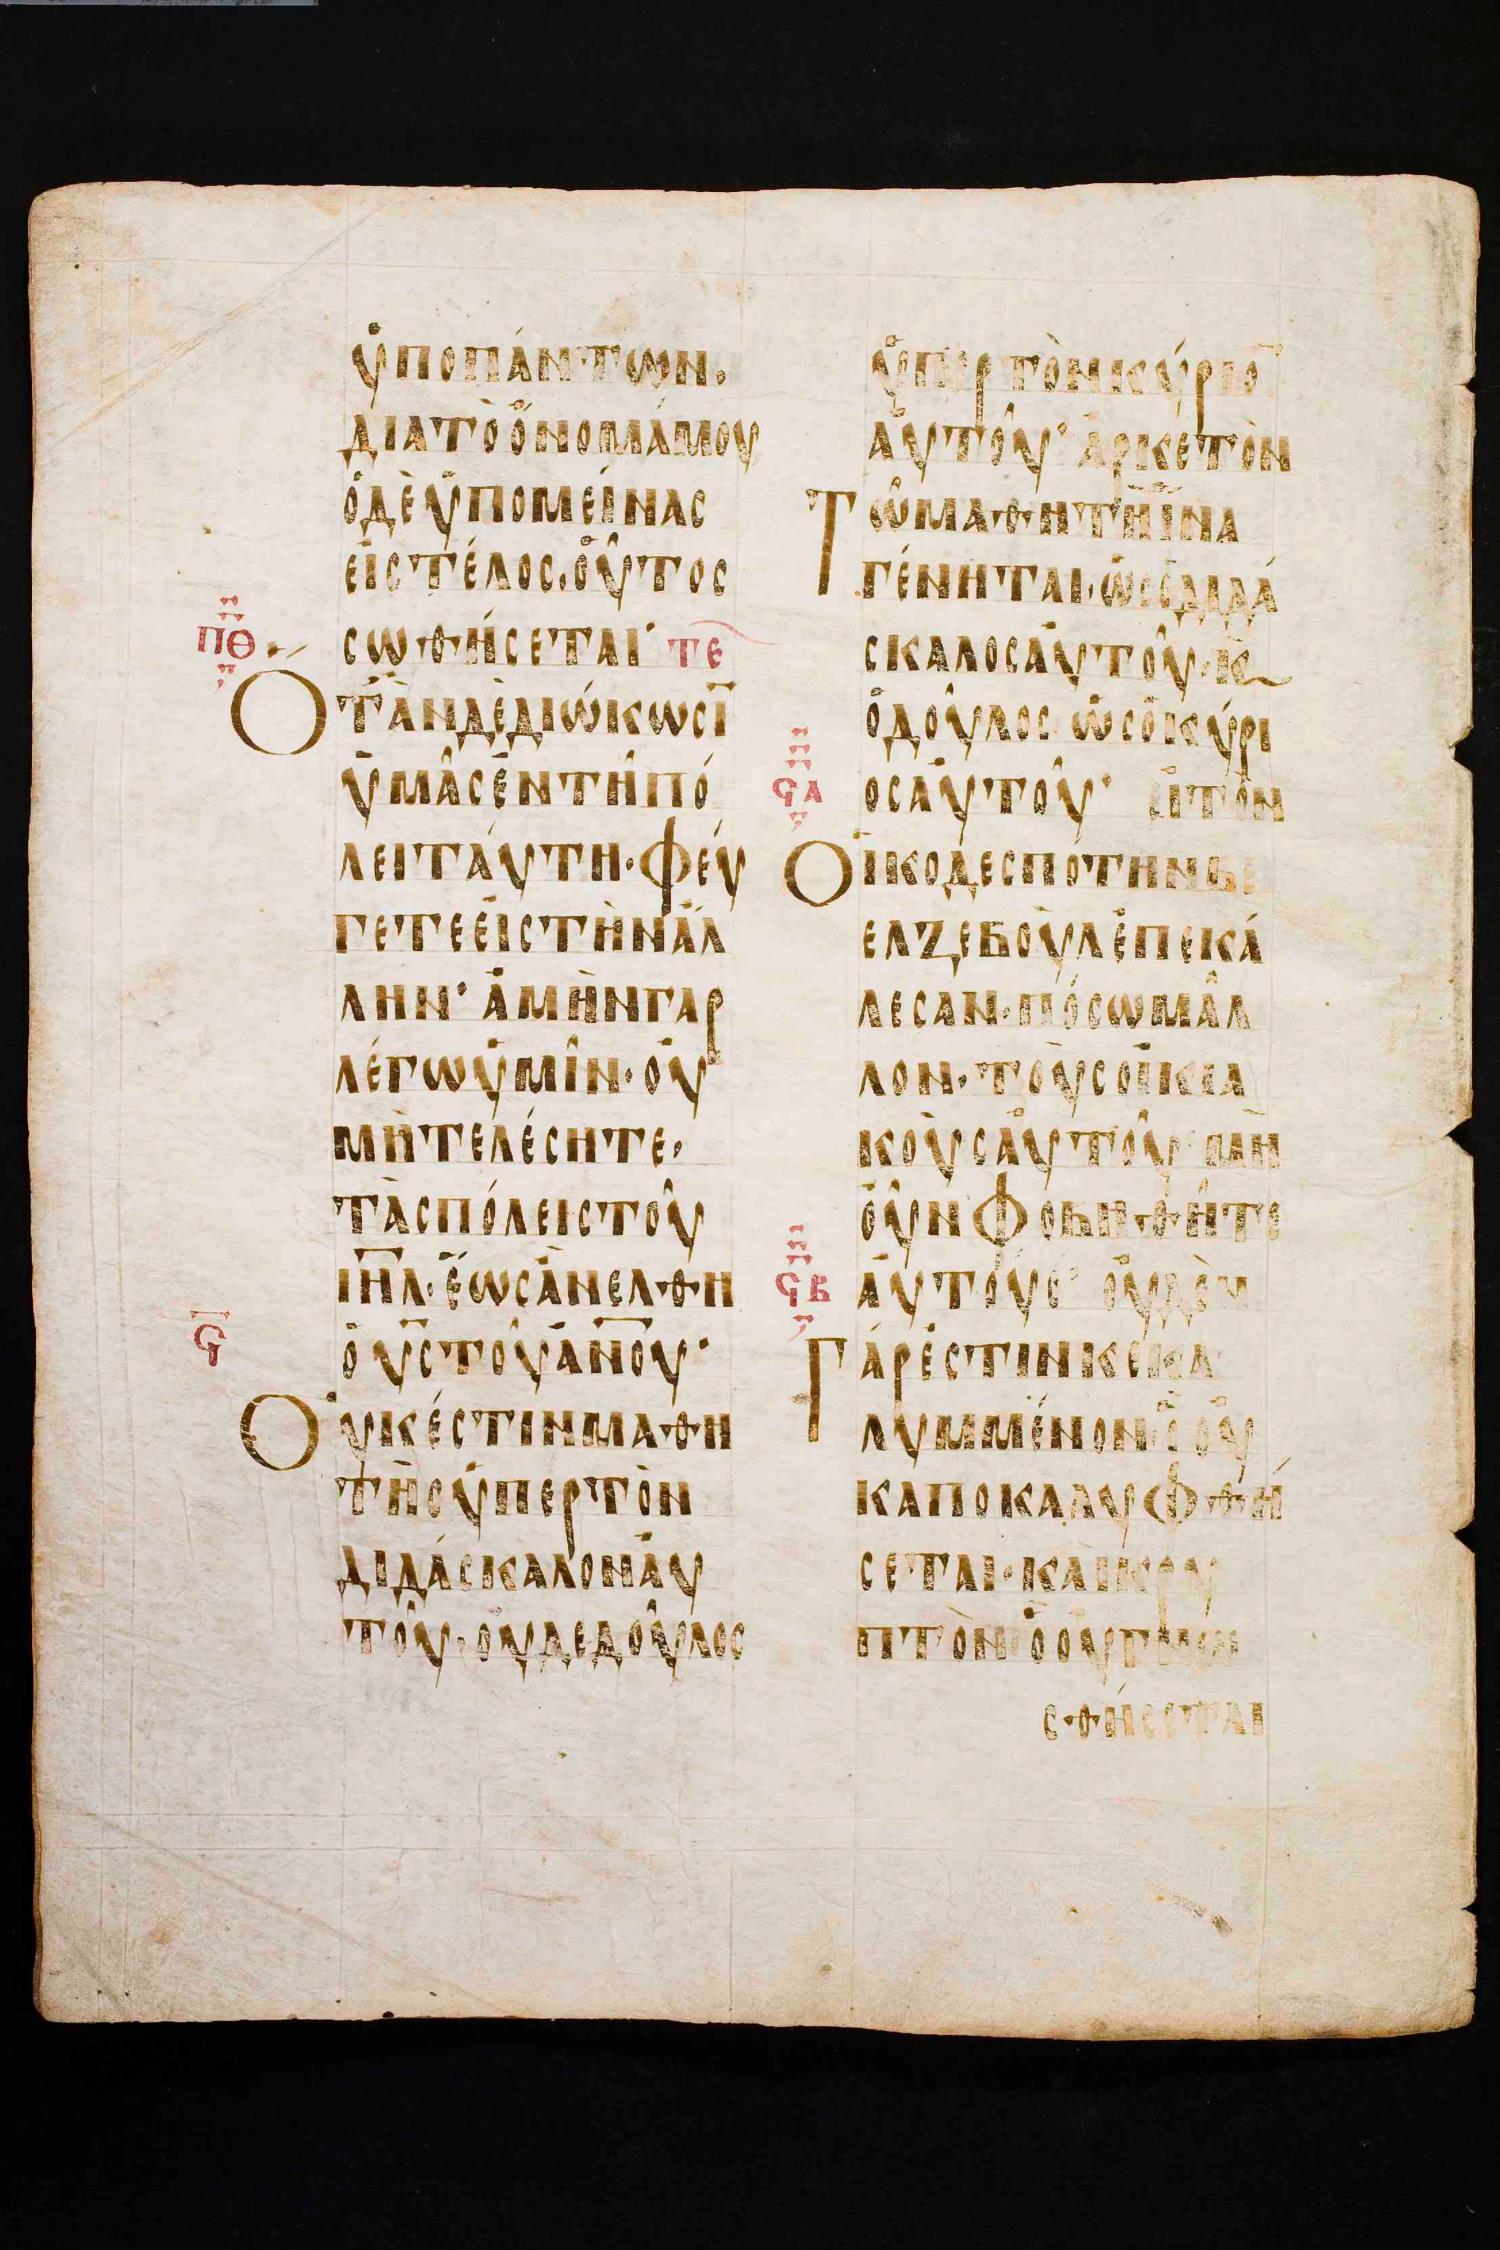 ὑποπάντων.
διατὸὄνομάμου
ὁδὲὑπομείνας
εἰστέλος.οὗτος
σωθήσεται· τε
πθ
Ὅτἂνδεδιώκωσῑ
ὑμᾶσἐντῆπό
λειταύτη·φεύ
γετεεἰστὴνἄλ
λην· ἀμὴνγαρ
λέγωὑμῖν·οὐ
μὴτελέσητε.
τὰσπόλειστοῦ
ιη̅λ·ἕωσἂνελθη
ὁυ̅στοῦαν̅ου·
ϙ
Οὐκέστινμαθη
τὴσὑπερτὸν
διδάσκαλοναὐ
τοῦ·οὐδεδοῦλος
ὑπὲρτὸνκύριο̅
αὐτοῦ· ἀρκετὸν
Τῶμαθητῆἵνα
γένηται·ὡσὁδιδά
σκαλοσαὐτοῦ·κ
ὁδοῦλος ὡσὁκύρι
οσαὐτοῦ· εἰτὸν
ϙα
Οἰκοδεσπότηνβε
ελζεβοὺλἐπεκά
λεσαν·πόσωμᾶλ
λον·τοὺσοἰκια
κοὺσαὐτοῦ· μὴ
οὖνφοβηθῆτε
αὐτούς· οὐδὲν
ϙβ
Γάρἐστινκεκα
λυμμένον· ὃ οὐ
καποκαλυφθή
σεται·καὶκρυ
πτὸν ὃοὐγνω
σθήσεται